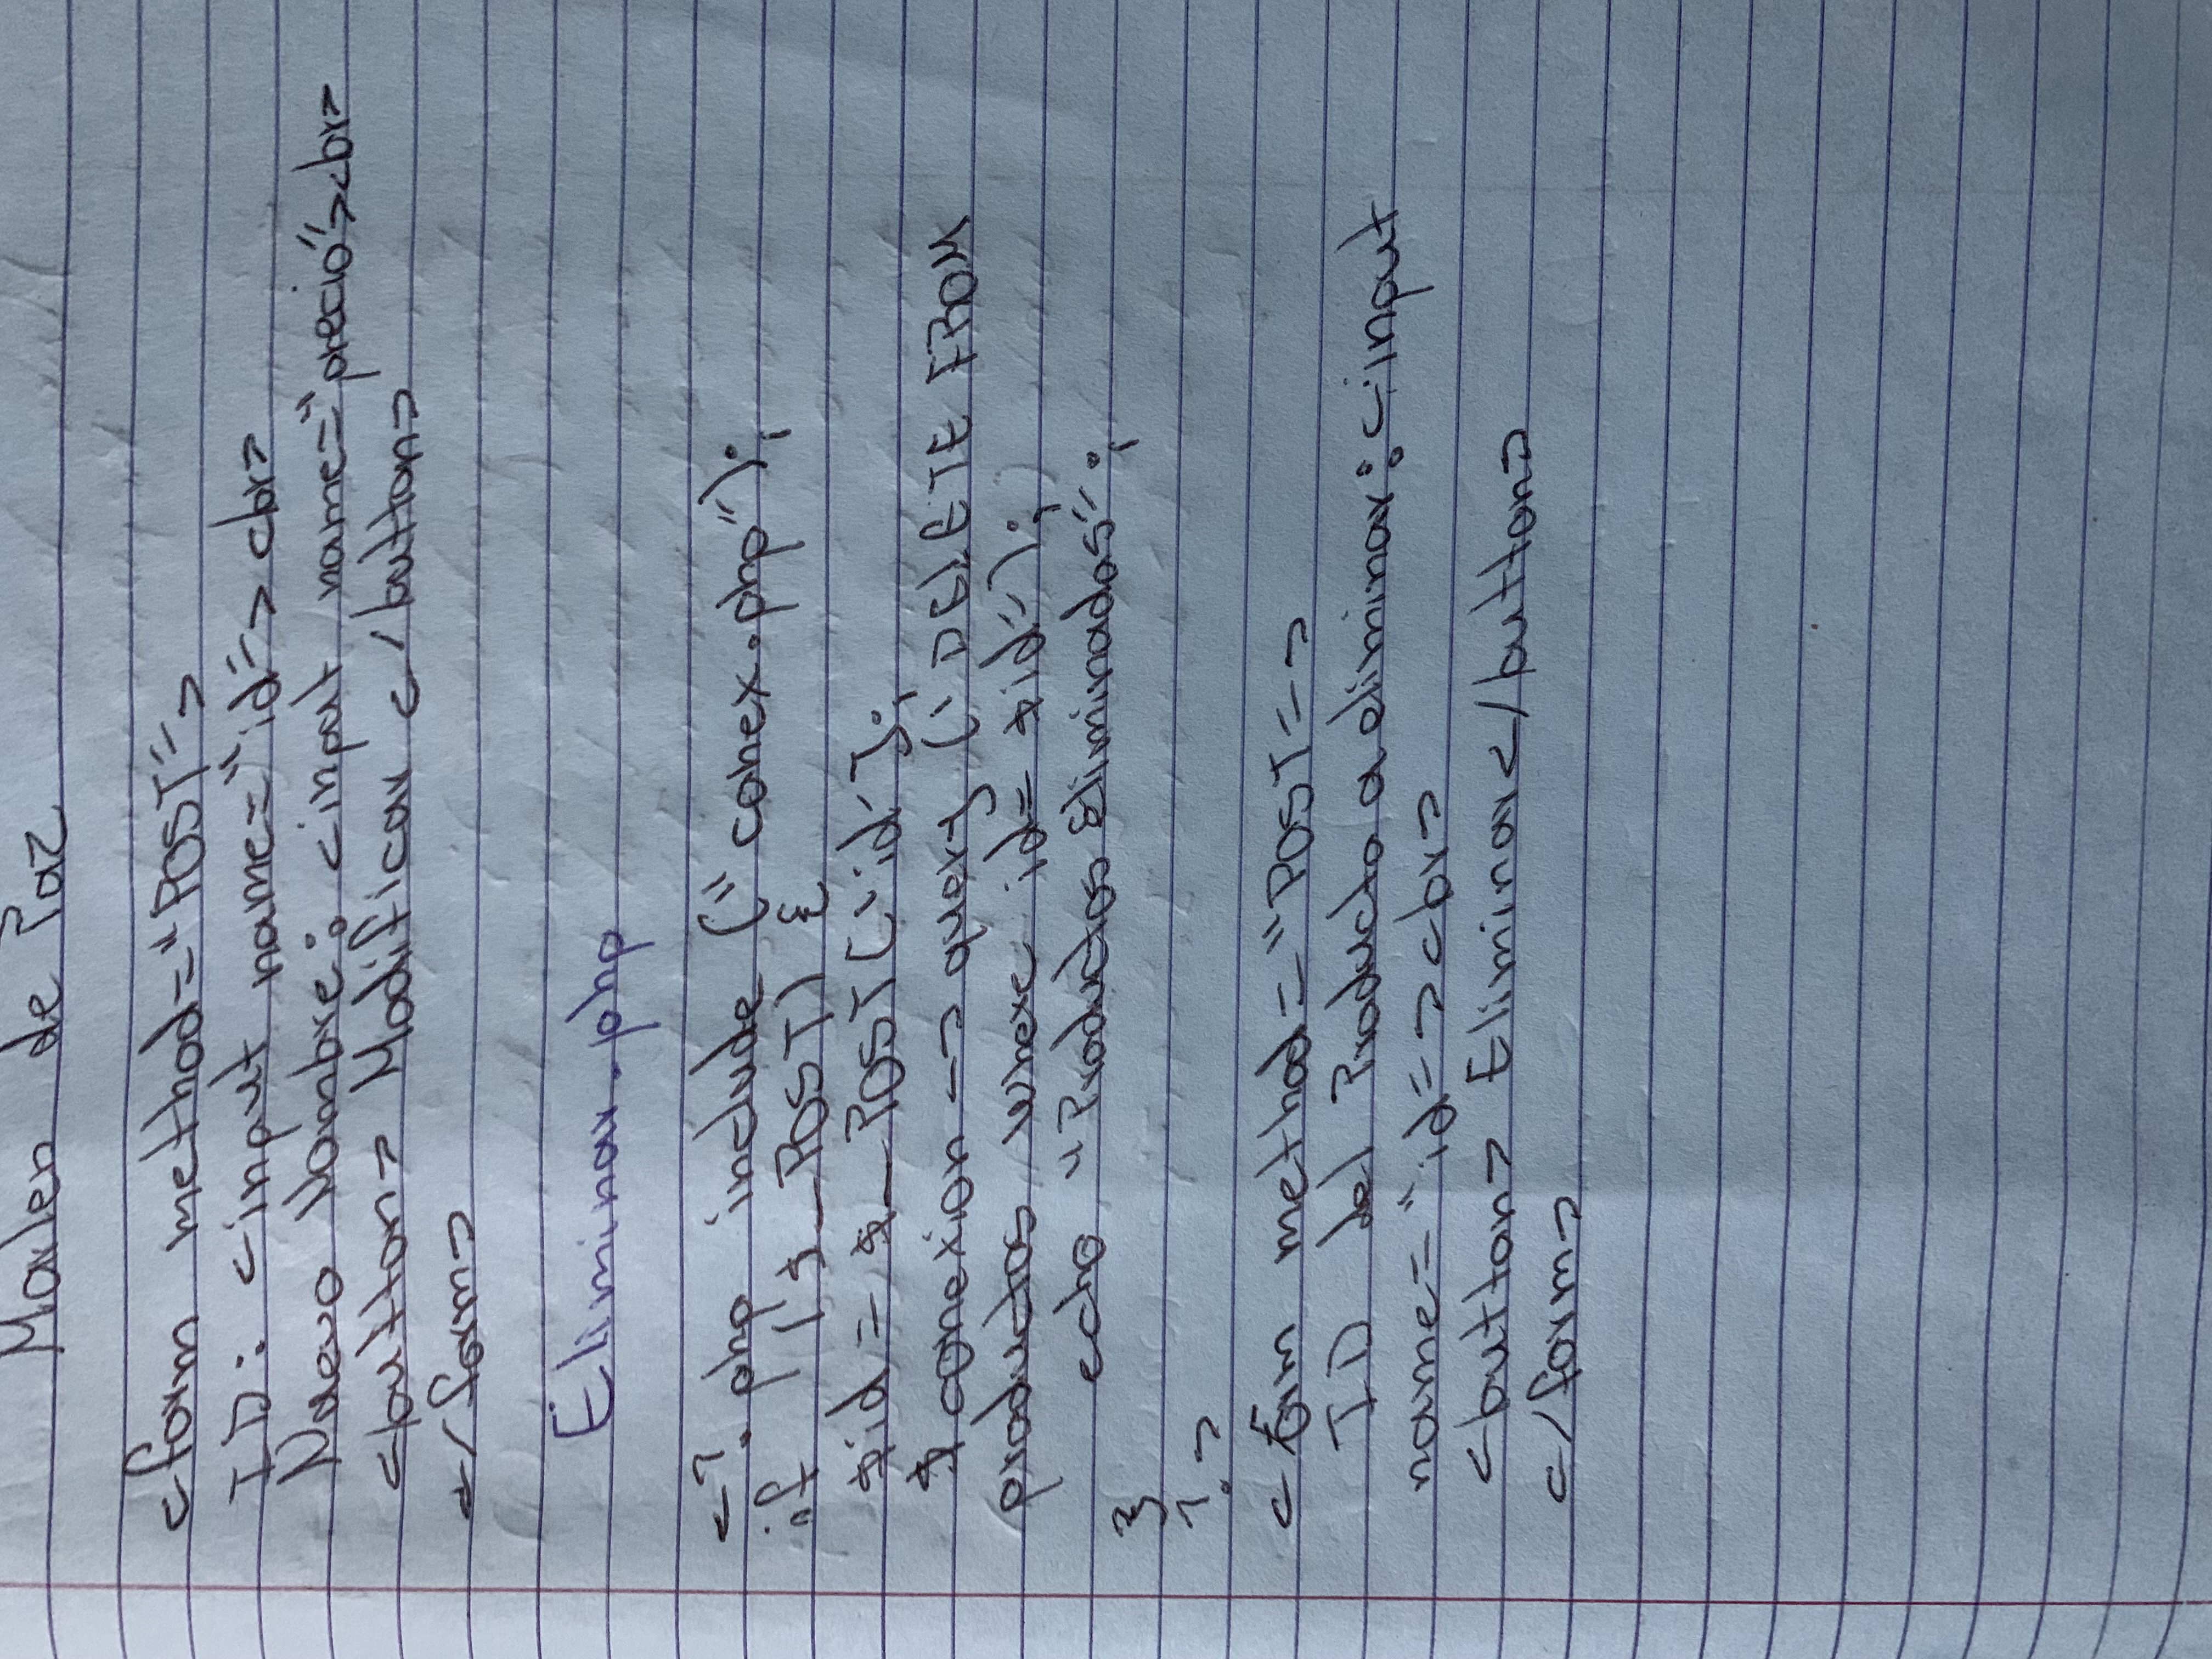 Marlen de Paz
<form method="POST">
ID: <input name="id"> <br>
Nuevo Nombre: <input name="precio"><br>
<button> Modificar </button>
</form>
Eliminar.php
<?php include ("conex.php");
if ($_POST) {
$id = $_POST['id'];
$conexion -> query ("DELETE FROM
productos where id= $id");
echo "Productos Eliminados";
}
?>
<form method="POST">
ID del Producto a eliminar: <input
name="id"> <br>
<button> Eliminar </button>
</form>